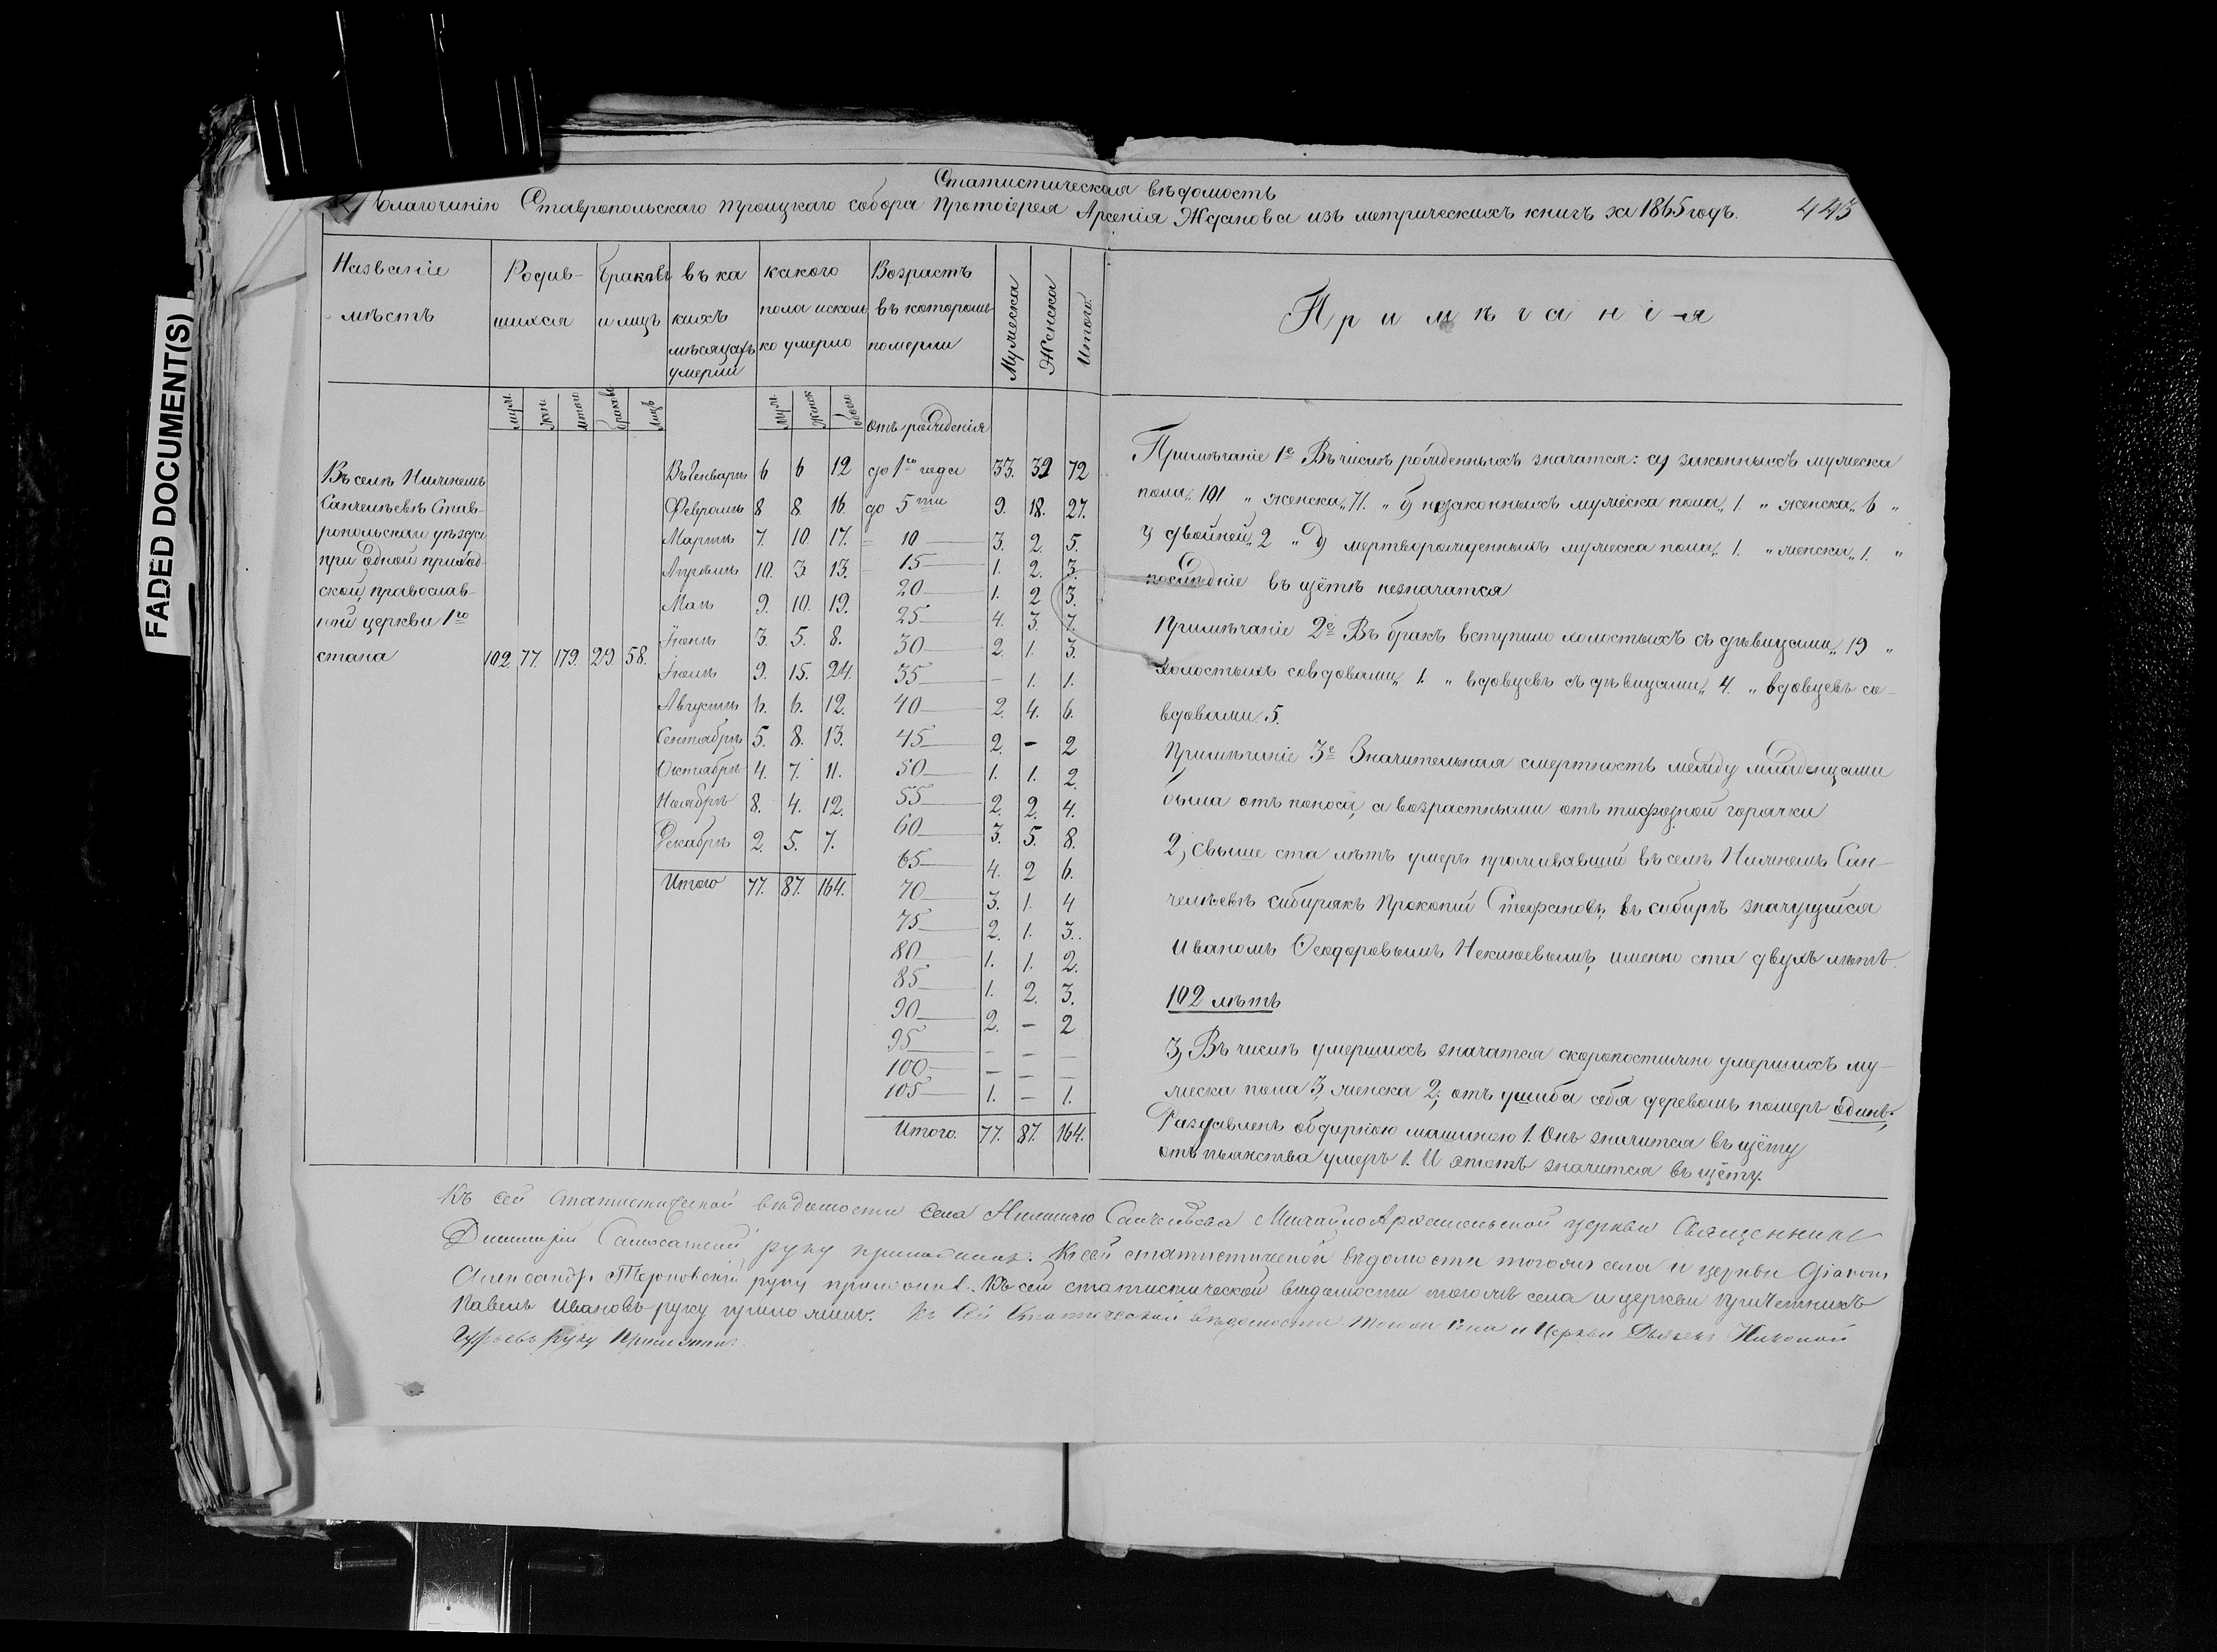 FADED DOCUMENT(S)
Статистическая вѣдомость
благочинію Ставропольскаго Троицкаго собора Протоіерея Арсенія Жданова изъ метрическихъ книгъ за 1865 годъ. 443
Названіе мѣстъ
Родившихся
браковъ и лицъ
въ какихъ мѣсяцахъ умерли
какого пола и сколько умерло
Возрастъ въ которомъ померли
Мужеска
Женска
Итого.
Примѣчанія
муж. жен. итого браковъ лицъ
муж. женск обоего
отъ рожденія
Въ селѣ Нижнемъ
Санчелѣевѣ Став-
ропольскаго уѣзда
при одной приход-
ской православ-
ной церкви 1го
стана 102 77. 179. 29 58.
Въ Генварѣ 6 6 12
Февралѣ 8 8. 16.
Мартѣ 7. 10. 17.
Апрѣлѣ 10. 3. 13.
Маѣ 9. 10. 19.
Іюнѣ 3. 5. 8.
Іюлѣ 9. 15. 24.
Августѣ 6. 6. 12.
Сентябрѣ 5. 8. 13.
Октябрѣ 4. 7. 11.
Ноябрѣ 8. 4. 12.
Декабрѣ 2. 5. 7.
Итого 77. 87. 164.
до 1го года 33. 39 72
до 5ти 9. 18. 27.
10 3. 2. 5.
15 1. 2. 3.
20 1. 2 3.
25 4. 3. 7.
30 2. 1. 3.
35 – 1. 1.
40 2. 4. 6.
45 2. – 2
50 1. 1. 2.
55 2. 2. 4.
60 3. 5. 8.
65 4. 2 6.
70 3. 1. 4
75 2. 1. 3.
80 1. 1. 2.
85 1. 2. 3.
90 2. – 2
95 – – –
100 – – –
105 1. – 1.
Итого. 77. 87. 164.
Примѣчаніе 1е Въ числѣ рожденныхъ значатся: а) законныхъ мужеска
пола „ 101 „ женска „ 71. „ б) незаконныхъ мужеска пола „ 1. „ женска „ 6 „
в) двойней „ 2 „ д) мертворожденныхъ мужеска пола „ 1. „ женска „ 1. „
послѣдніе въ щётѣ незначатся
Примѣчаніе 2е Въ бракъ вступило холостыхъ съ дѣвицами „ 19 „
холостыхъ совдовами „ 1. „ вдовцевъ съ дѣвицами „ 4. „ вдовцевъ со-
вдовами 5.
Примѣчаніе 3е Значительная смертность между младенцами
была отъ поноса, а возрастными отъ тифозной горячки
2, свыше ста лѣтъ умеръ проживавшій въ селѣ Нижнемъ Сан-
челѣевѣ сибирякъ Прокопій Стефановъ, въ сибирѣ значущійся
Иваномъ Ѳеодоровымъ , именно ста двухъ лѣтъ
102 лѣтъ
3, Въ числѣ умершихъ значатся скоропостижно умершихъ му-
жеска пола 3, женска 2; отъ ушиба себя деревомъ померъ одинъ.
Раздавленъ обдирною машиною 1. Онъ значится въ щёту
отъ пьянства умеръ 1. И этотъ значится въ щёту.
Къ сей статистической вѣдомости села Нижняго Санчелѣева Михайло Архангельской церкви Священникъ
Димитрій руку приложилъ. Къ сей статистической вѣдомости тогожъ села и церкви Діаконъ
Александръ Терновскій руку приложилъ. Къ сей статистической вѣдомости тогожъ села и церкви причетникъ
Павелъ Ивановъ руку приложилъ. Къ сей вѣдомости тогожъ села и Церкви Дьячекъ Николай
руку приложилъ.